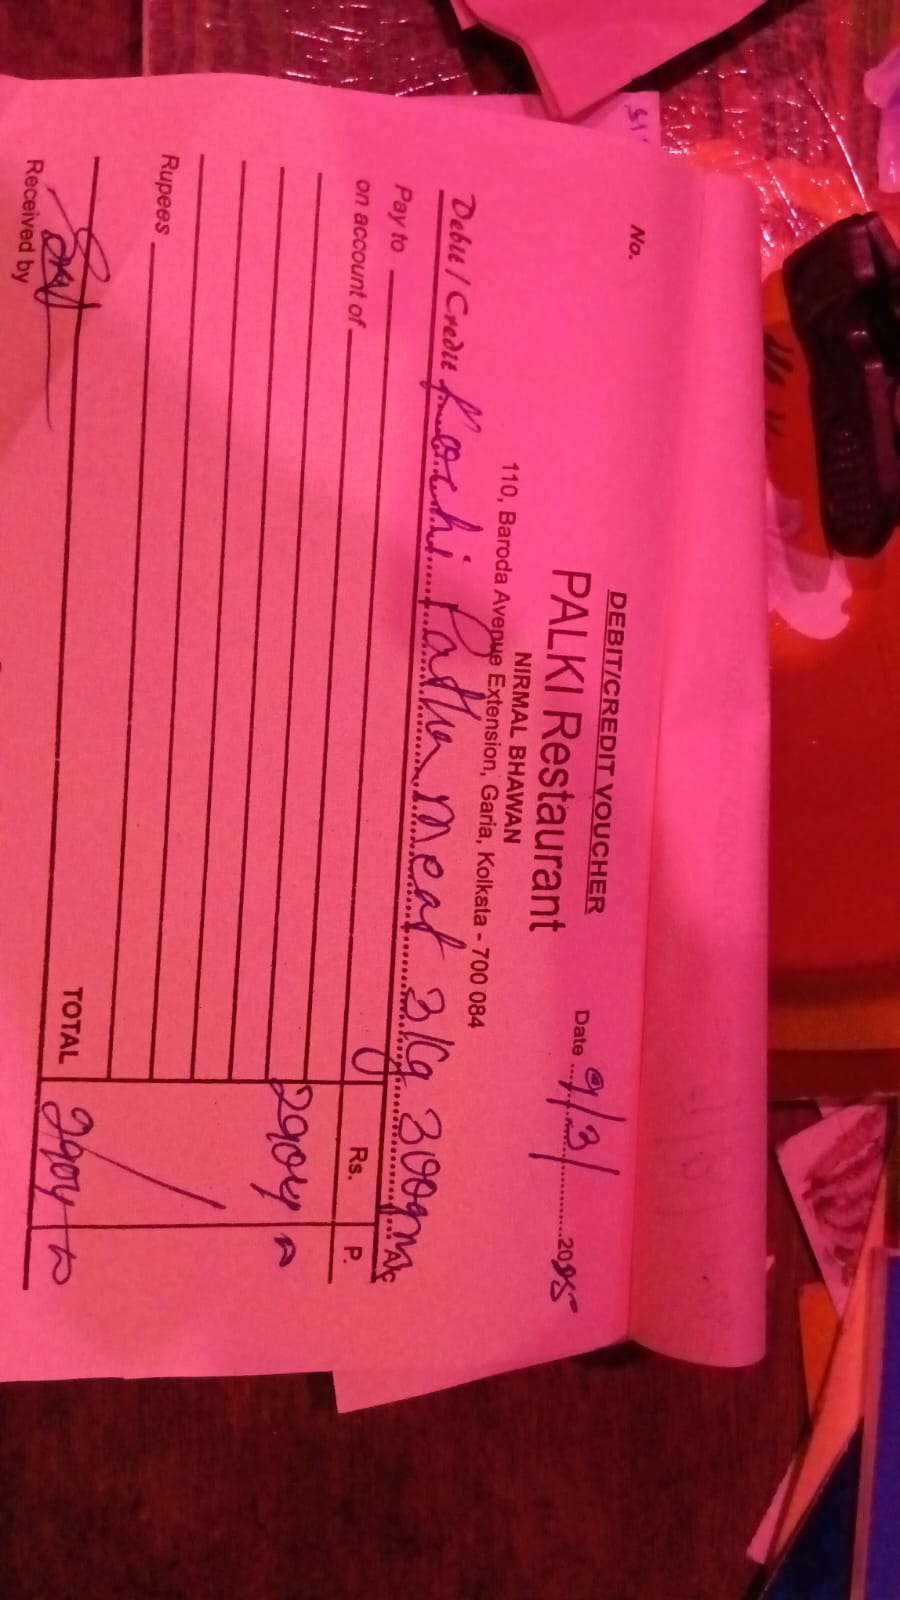 DEBIT/CREDIT VOUCHER
No.
PALKI Restaurant
NIRMAL BHAWAN
110, Baroda Avenue Extension, Garia, Kolkata - 700 084
Date 9/3/2025
Debit / Credit Kochi Patha meat 3Kg 300gm A/c
Pay to
on account of Rs. P.
2904
Rupees
TOTAL 2904
Received by